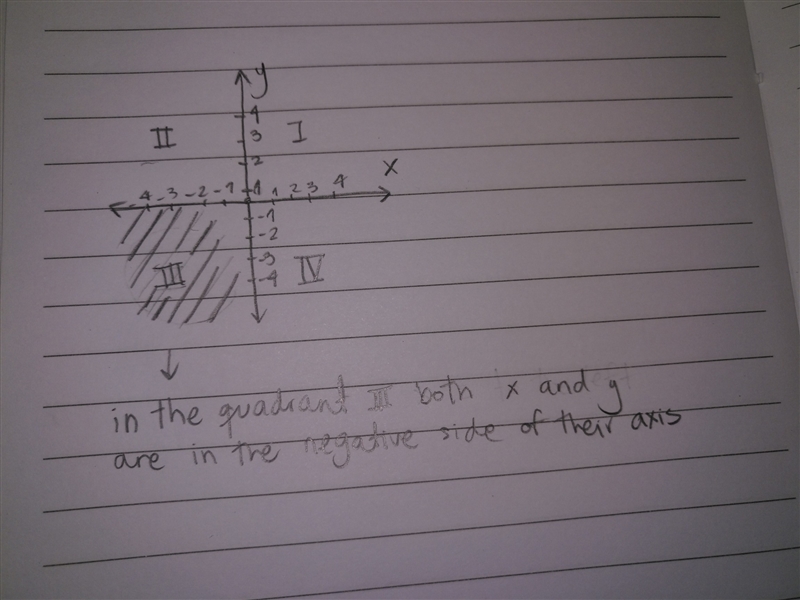 y
4
II 3 I
2
x
-4 -3 -2 -1 1 1 2 3 4
-1
-2
-3
III -4 IV
in the quadrant III both x and y
are in the negative side of their axis